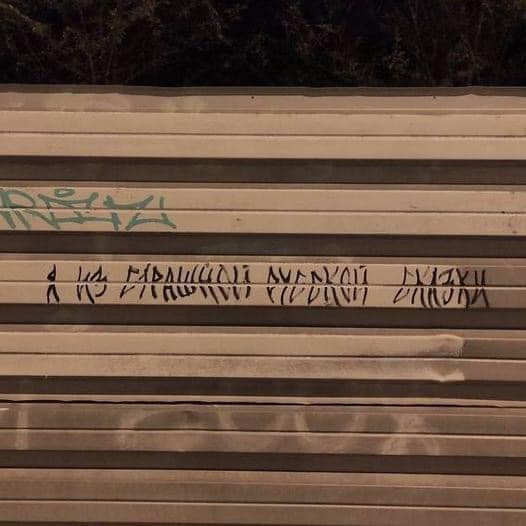 Я ИЗ СТРАШНОЙ РУССКОЙ СКАЗКИ